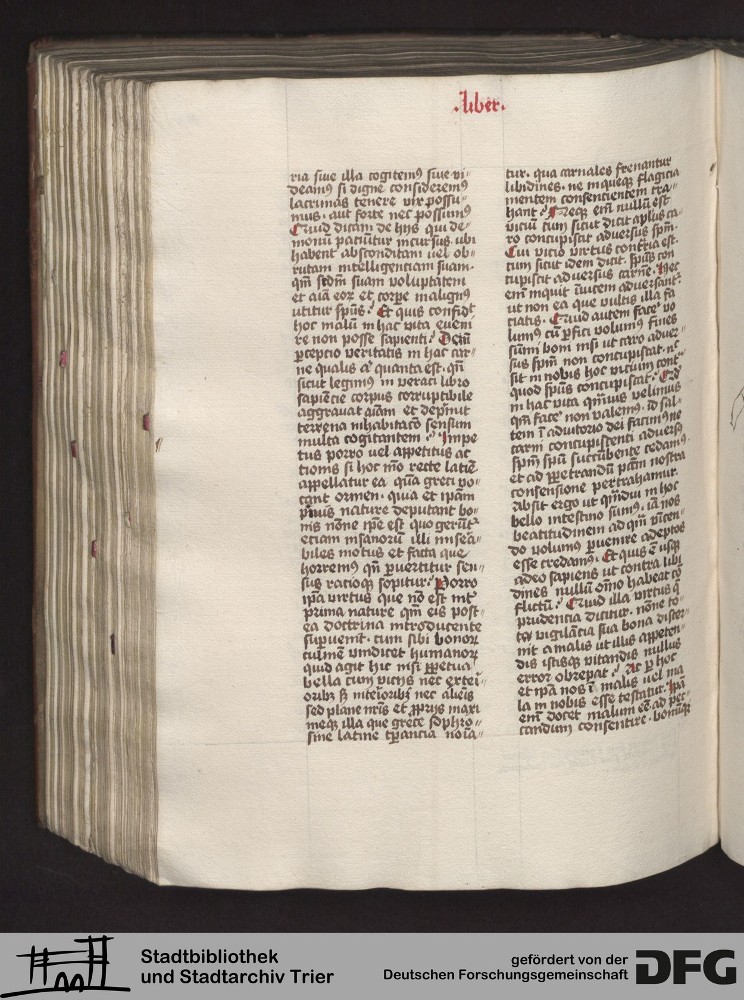 .liber.
ria siue illa cogitemꝰ siue vi-
deamꝰ si digne consideremꝰ
lacrimas tenere vix possu-
mus. aut forte nec possumꝰ
Quid dicam de hijs qui de-
monū patiūtur incursus. ubi
habent absconditam uel ob-
rutam intelligentiam suam.
qm̄ scdm̄ suam voluptatem
et aīa eoꝝ et corpe malignꝰ
utitur spūs. Et quis confidt
hoc malū in hac vita eueni
re non posse sapienti. Deīn
ꝑceptio veritatis in hac car-
ne qualis ā quanta est. qn̄
sicut legimꝰ in veraci libro
sapiēcie corpus corruptibile
aggrauat aīam et depīmit
terrena inhabitacō sensum
multa cogitantem. Impe
tus porro uel appetitus ac
tionis si hoc mō recte latīe
appellatur ea quā greci vo-
cant ormen. qua et ipam
pīmis nature deputant bo-
nis nōne ipe est quo gerūtᷣ
etiam insanoꝝ illi misea-
biles motus et facta que
horremꝰ qn̄ ꝑuertitur sen-
sus ratioqꝫ sopitur. Porro
ipa virtus que nō est int
prima nature qm̄ eis post-
ea doctrina introducente
supuenit. cum sibi bonoꝝ
culmē vindicet humanoꝝ
quid agit hic nisi ꝑpetua
bella cum vicijs nec exteī-
oribꝫ ß inteīoribꝫ nec alieīs
sed plane nr̄is et ꝓprijs maxi
meqꝫ illa que grece sophro-
sine latine tꝑancia noīa-
tur. qua carnales frenantur
libidines. ne in queqꝫ flagicia
mentem consentientem tra-
hant. Neqꝫ em̄ nullū est
viciū cum sicut dicit aplus ca-
ro concupiscit aduersus spm̄.
Cui vicio virtus contria est.
cum sicut idem dicit. spūs con
cupiscit aduersus carnē. Hec
em̄ inquit īuicem aduersant.
ut non ea que vultis illa fa
ciatis. Quid autem facē vo
lumꝰ cū ꝑfici volumꝰ fines
sūmi boni nisi ut caro aduer-
sus spm̄ non concupiscat. nec
sit in nobis hoc vicium cont
quod spūs concupiscat. Qd̓
in hac vita qm̄uis velimus
qm̄ facē non valemꝰ. id sal-
tem ī adiutorio dei facimꝰ ne
carni concupiscenti aduersꝰ
spm̄ spū succūbente cedamꝰ.
et ad ꝑpetrandū pccm̄ nostra
consensione pertrahamur.
Absit ergo ut qm̄diu in hoc
bello intestino sumꝰ. iā nos
beatitudinem ad qm̄ vincen-
do volumꝰ ꝑuenire adeptos
esse credamꝰ. Et quis ē usqꝫ
adeo sapiens ut contra libi
dines nullū oīno habeat cō
flictū. Quid illa virtus q̄
prudencia dicitur. nōne to-
ta vigilācia sua bona discer-
nit a malis ut illis appeten-
dis istisqꝫ vitandis nullus
error obrepat. Ac ꝑ hoc
et ipā nos ī malis uel ma
la in nobis esse testatur. Ipā
em̄ docet malum eē ad pec-
candum consentire. bonūqꝫ
Stadtbibliothek
und Stadtarchiv Trier
gefördert von der
Deutschen Forschungsgemeinschaft
DFG